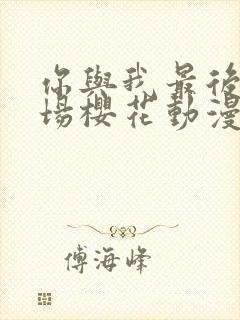 你與我最後
場櫻花動漫
傅海峰